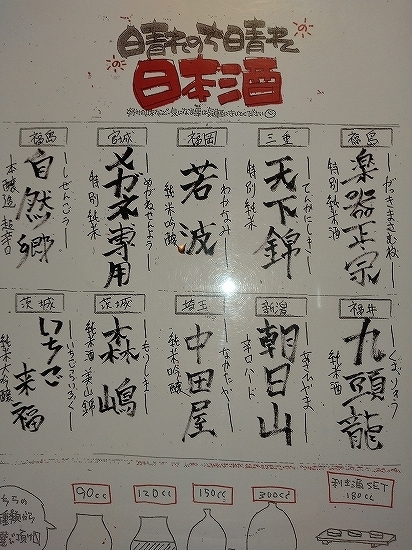 晴れのち晴れ
日本酒
福島
楽器正宗
がっきまさむね
純米酒
三重
天下錦
てんかにしき
特別純米
福岡
若波
わかなみ
純米吟醸
宮城
メガネ専用
めがねせんよう
特別純米
福島
自然郷
しぜんごう
本醸造 超辛口
福井
九頭龍
くずりゅう
純米酒
新潟
朝日山
あさひやま
辛口ハード
埼玉
中田屋
なかたや
純米吟醸
茨城
森嶋
もりしま
純米酒 美山錦
茨城
いちご来福
いちごらいふく
純米大吟醸
90cc
120cc
150cc
300cc
利き酒SET
180cc